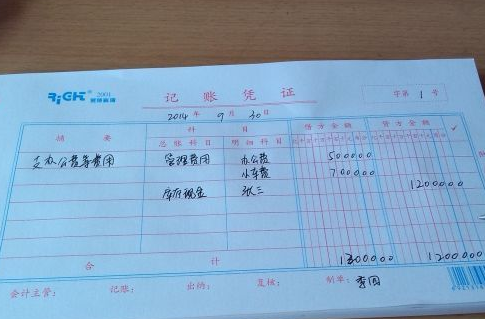 RiGHT 2001
记账凭证
字第 1 号
2014 年 9 月 30 日
摘要 科目 借方金额 贷方金额 ✓
总账科目 明细科目
支办公费等费用 管理费用 办公费 500000
小车费 700000
库存现金 张三 1200000
合计 1200000 1200000
会计主管: 记账: 出纳: 复核: 制单: